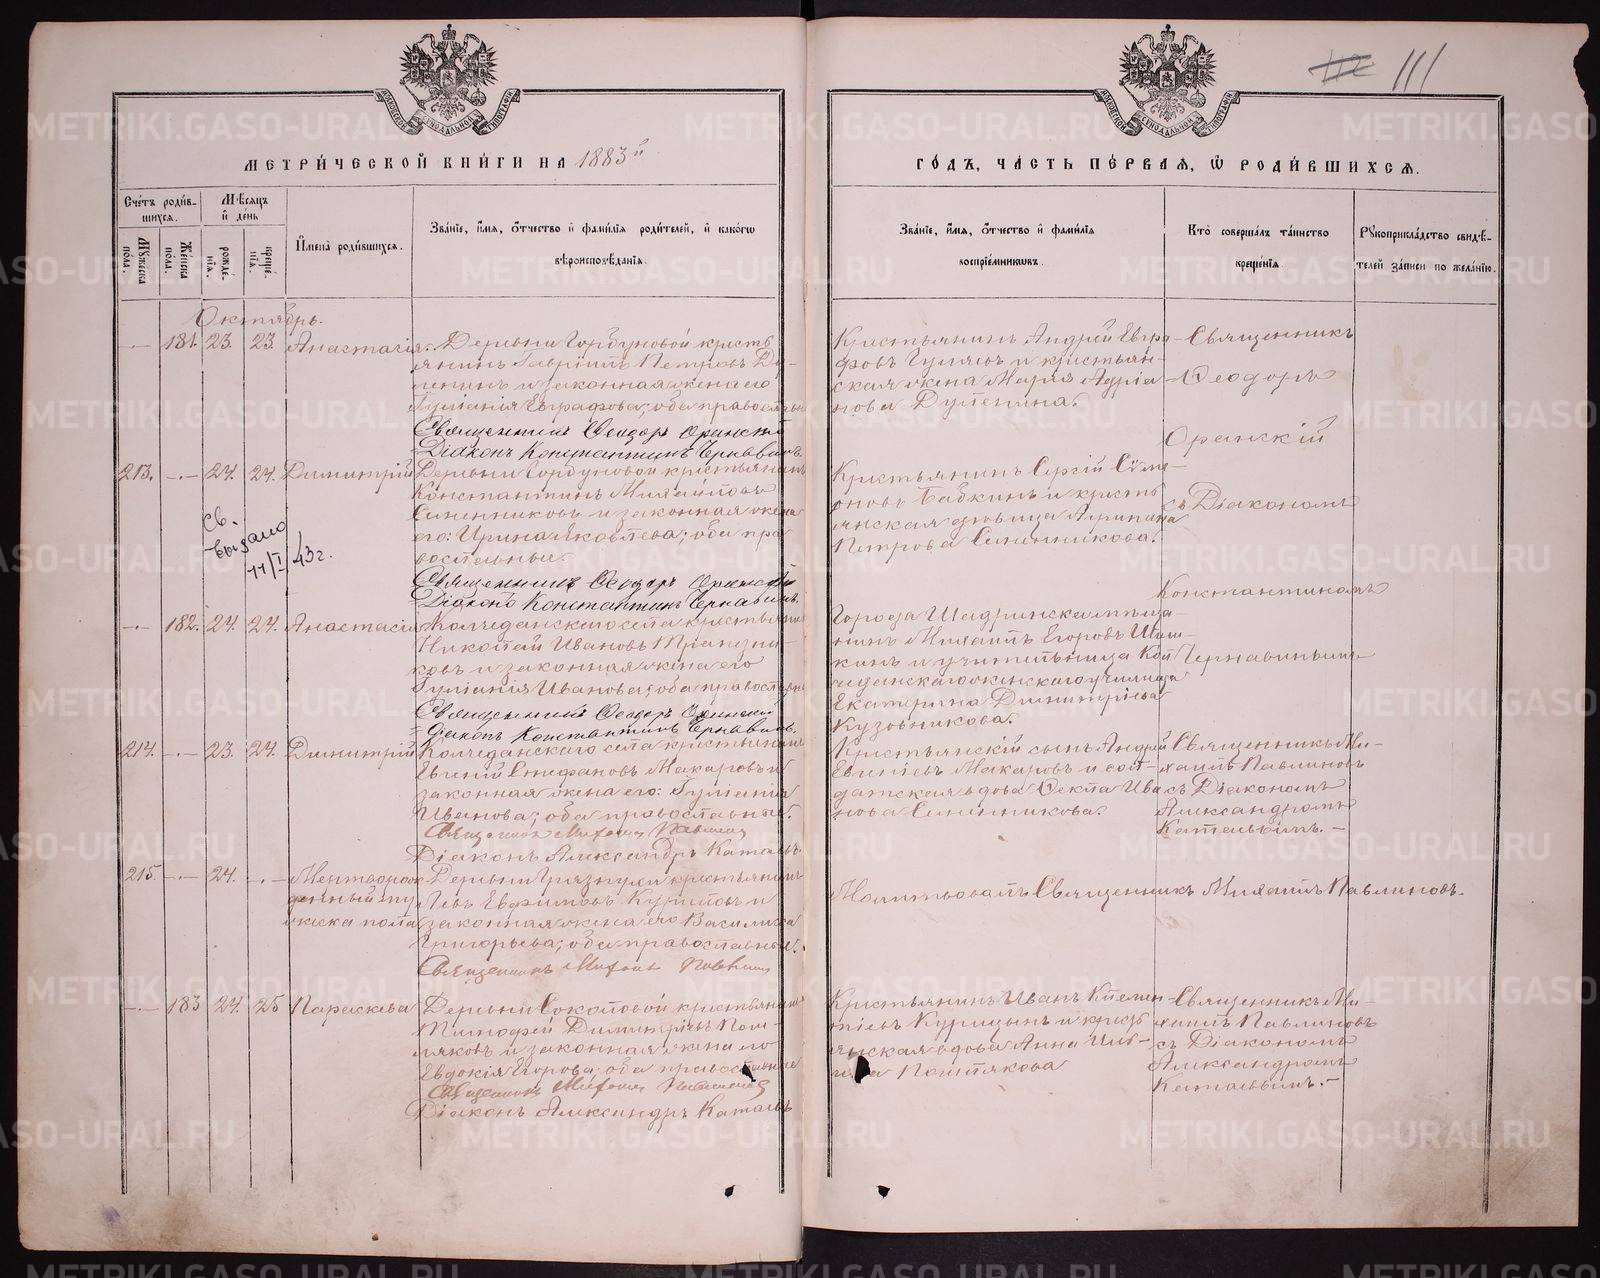 111
МЕТРИЧЕСКОЙ КНИГИ НА 1883й
ГОДЪ, ЧАСТЬ ПЕРВАЯ, Ѿ РОДИВШИХСЯ.
Счетъ родившихся.
Мужеска пола.
Женска пола.
Мѣсяцъ и день
рожденія.
крещенія.
Имена родившихся.
Званіе, имя, отчество и фамилія родителей, и какогѡ
вѣроисповѣданія.
Званіе, имя, отчество и фамилія
воспріемниковъ.
Кто совершалъ таинство
крещенія.
Рукоприкладство свидѣ-
телей записи по желанію.
Октябрь.
181. 23. 23. Анастасія.
Деревни Горбуновой кресть
янинъ Гавріилъ Петровъ
и законная жена его
Іуліанія Евграфова; оба православн
Священникъ Ѳеодоръ
Діаконъ Константинъ Чернавинъ.
Крестьянинъ Андрей Евгра-
фовъ и крестьян-
ская жена Марія Адріа-
нова
Священникъ
Ѳеодоръ
213. 24. 24. Димитрій
Деревни Горбуновой крестьянинъ
Константинъ Михайловъ
Синенниковъ и законная жена
его: Ирина Яковлева; оба пра
вославные.
Священникъ Ѳеодоръ
Діаконъ Константинъ Чернавинъ.
Крестьянинъ Сергій Сѵме-
оновъ Бабкинъ и кресть
янская дѣвица Агрипина
Петрова Синенникова.
съ Діакономъ
Св.
выдано
11/I 43г.
182. 24. 24. Анастасія
Колчеданскаго села крестьянинъ
Николай Ивановъ Трапезни-
ковъ и законная жена его
Іуліанія Иванова; оба православн
Священникъ Ѳеодоръ
Діаконъ Константинъ Чернавинъ.
Города Шадринска мѣща-
нинъ Михаилъ Егоровъ Шиш-
кинъ и учительница Кол
чеданскаго женскаго училища
Екатерина Димитріева
Кузовникова.
Константиномъ
Чернавинымъ
214. 23. 24. Димитрій
Колчеданскаго села крестьянинъ
Евгеній Епифановъ Макаровъ и
законная жена его: Іуліанія
Иванова; оба православные.
Священникъ Михаилъ Павлиновъ
Діаконъ Александръ Катаевъ.
Крестьянскій сынъ Андрей
Евгеніевъ Макаровъ и сол-
датская вдова Ѳекла Ива
нова Синенникова.
Священникъ Ми-
хаилъ Павлиновъ
съ Діакономъ
Александромъ
Катаевымъ.
215. 24. Мертворож
денный му
жеска пола
Деревни Грязнухи крестьянинъ
Левъ Евфимовъ Куриловъ и
законная жена его Василиса
Григорьева; оба православные.
Священникъ Михаилъ Павлиновъ
Молитвовалъ Священникъ Михаилъ Павлиновъ.
183 24. 25 Параскева
Деревни Соколовой крестьянинъ
Тимофей Димитріевъ Пош-
ляковъ и законная жена его
Евдокія Егорова; оба православные
Священникъ Михаилъ Павлиновъ
Діаконъ Александръ Катаевъ
Крестьянинъ Иванъ Климен-
тіевъ Курицынъ и кресть
янская вдова Анна
Пошлякова
Священникъ Ми-
хаилъ Павлиновъ
съ Діакономъ
Александромъ
Катаевымъ.
METRIKI.GASO-URAL.RU